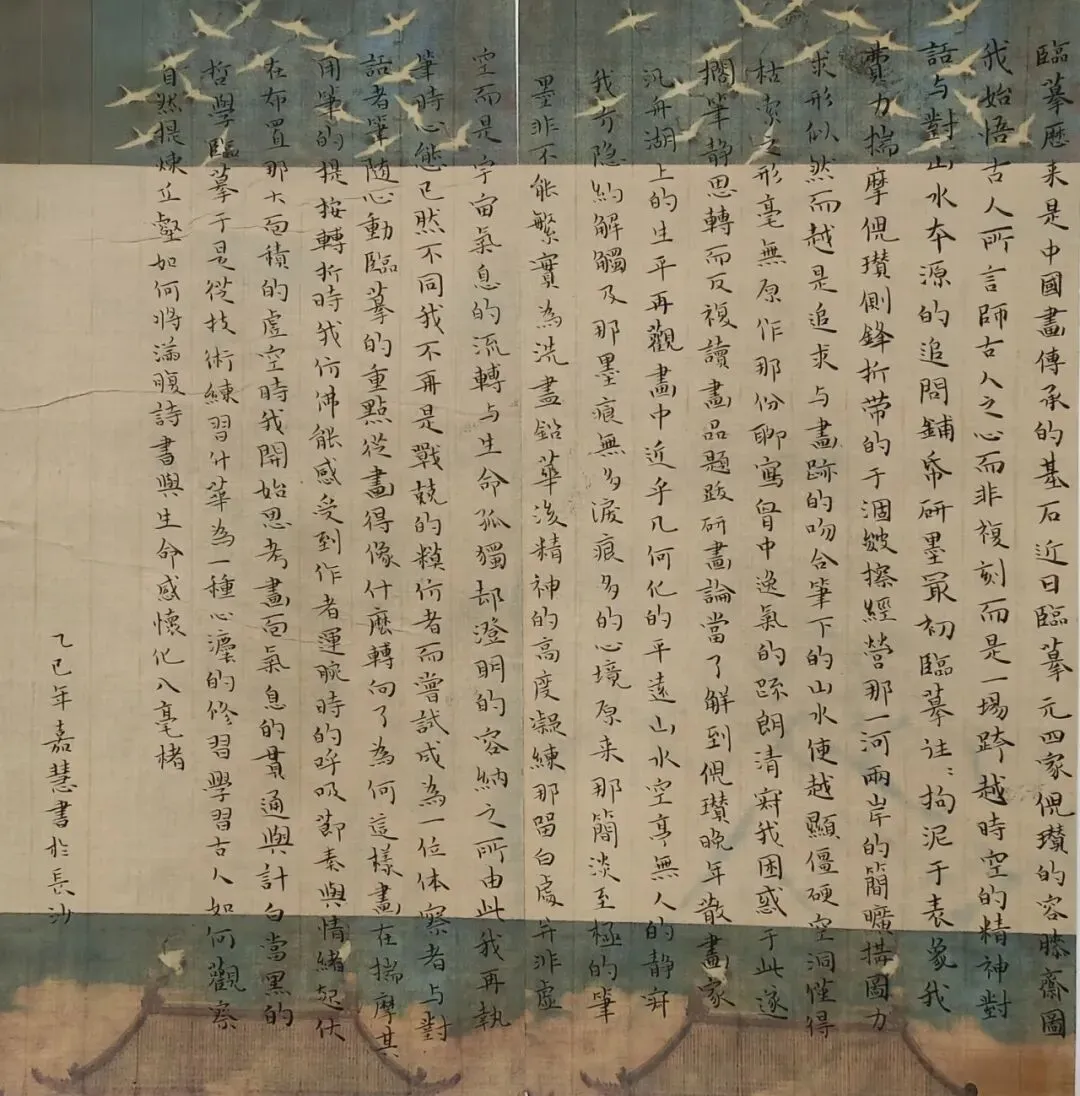 臨摹歷来是中國畫傳承的基石近日臨摹元四家倪瓚的容膝齋圖
我始悟古人所言師古人之心而非複刻而是一場跨越時空的精神對
話与對山水本源的追問鋪帋研墨最初臨摹往:拘泥于表象我
費力揣摩倪瓚側鋒折带的干涸皴擦經營那一河兩岸的簡曠構圖力
求形似然而越是追求与畫跡的吻合筆下的山水使越顯僵硬空洞惟得
枯索之形毫無原作那份聊寫胷中逸氣的踈朗清寂我困惑于此遂
擱筆静思轉而反複讀畫品題跋研畫論當了解到倪瓚晚年散盡家
汎舟湖上的生平再觀畫中近乎几何化的平遠山水空亭無人的静寂
我方隐約解觸及那墨痕無多淚痕多的心境原来那簡淡至極的筆
墨非不能繁實為洗盡鉛華後精神的高度凝練那留白處并非虚
空而是宇宙氣息的流轉与生命孤獨却澄明的容納之所由此我再執
筆時心態已然不同我不再是戰兢的模仿者而嘗試成為一位体察者与對
話者筆随心動臨摹的重點從畫得像什麽轉向了為何這樣畫在揣摩其
用筆的提按轉折時我仿佛能感受到作者運腕時的呼吸節奏與情緒起伏
在布置那大面積的虚空時我開始思考畫面氣息的貫通與計白當黑的
哲學臨摹于是從技術練習升華為一種心靈的修習學習古人如何觀察
自然提煉丘壑如何將滿腹詩書與生命感懷化入毫楮
乙巳年嘉慧書於長沙